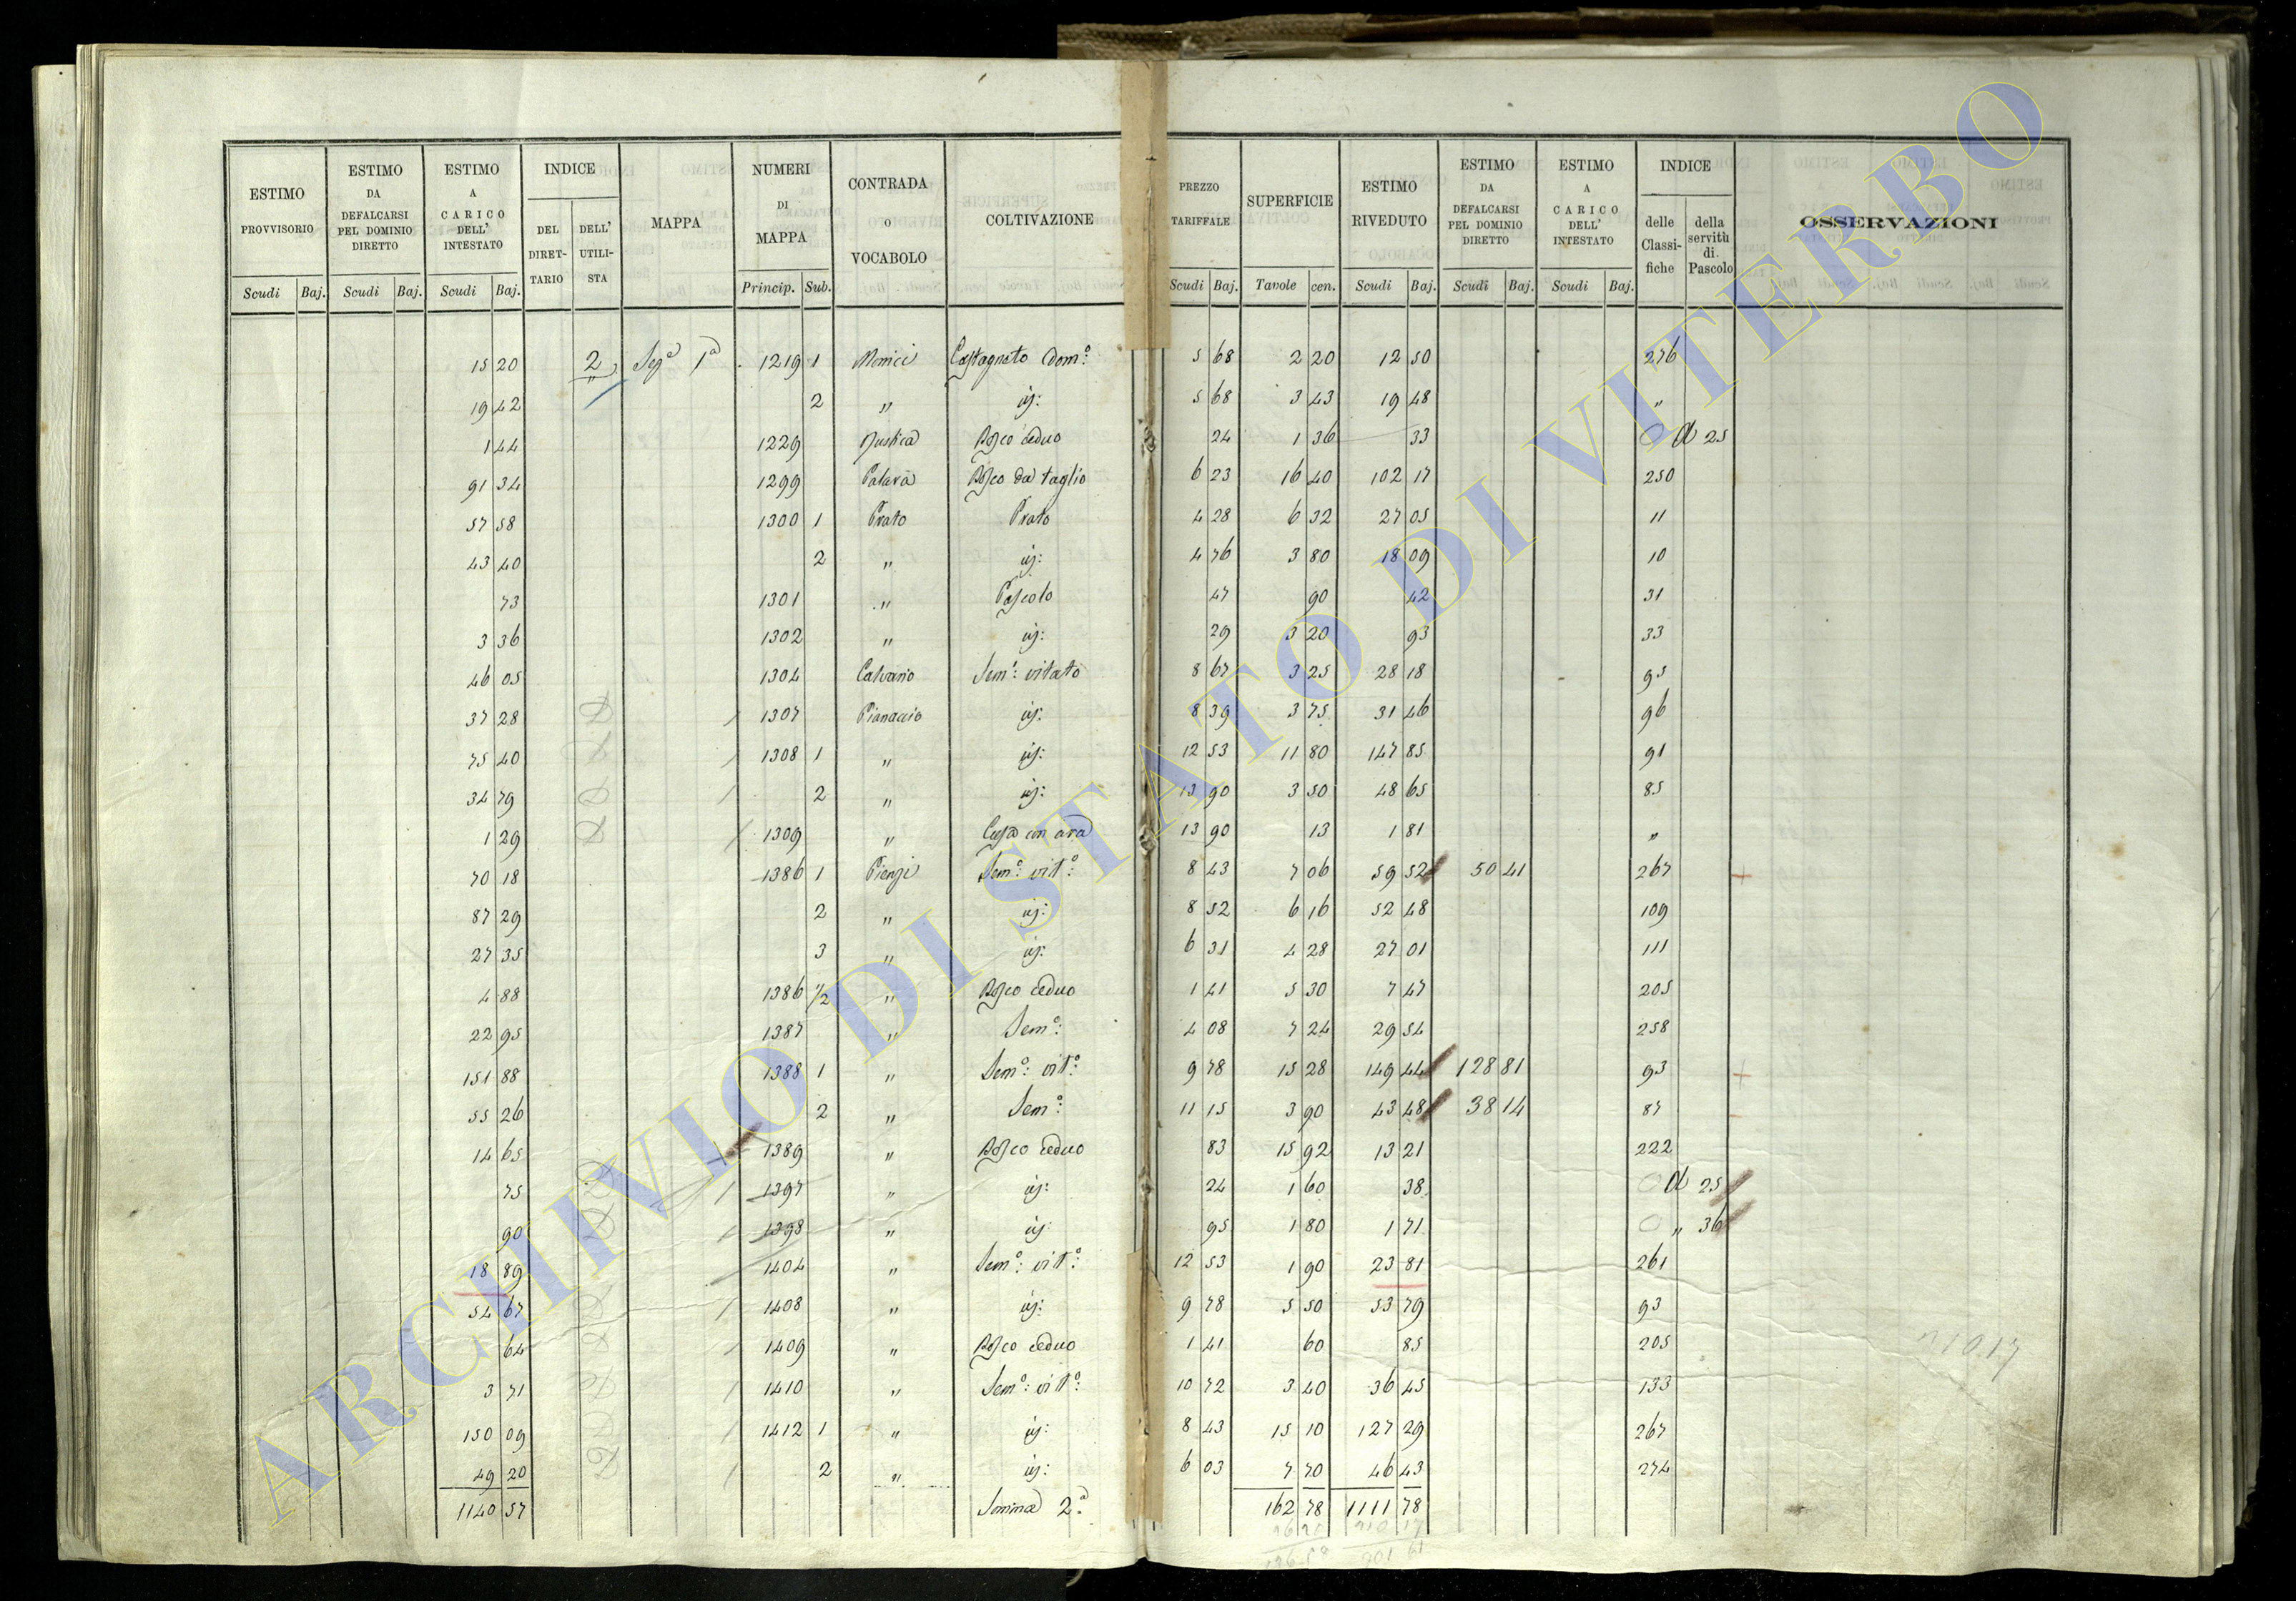 ESTIMO PROVVISORIO | ESTIMO DA DEFALCARSI PEL DOMINIO DIRETTO | ESTIMO A CARICO DELL' INTESTATO | INDICE DEL DIRETTARIO | DELL' UTILISTA | MAPPA | NUMERI DI MAPPA | CONTRADA o VOCABOLO | COLTIVAZIONE | PREZZO TARIFFALE | SUPERFICIE | ESTIMO RIVEDUTO | ESTIMO DA DEFALCARSI PEL DOMINIO DIRETTO | ESTIMO A CARICO DELL' INTESTATO | INDICE delle Classifiche | della servitù di Pascolo | OSSERVAZIONI
Scudi Baj. Scudi Baj. Scudi Baj. Princip. Sub. Scudi Baj. Tavole cen. Scudi Baj. Scudi Baj. Scudi Baj.
15 20 2 Segª 1ª 1219 1 Castagneto dom.º 5 68 2 20 12 50 276
19 42 2 " id: 5 68 3 43 19 48 "
1 44 1229 Bosco ceduo 24 1 36 33 25
91 34 1299 Bosco da taglio 6 23 16 40 102 17 250
57 58 1300 1 Prato Prato 4 28 6 32 27 05 11
43 40 2 " id: 4 76 3 80 18 09 10
73 1301 " Pascolo 47 90 42 31
3 36 1302 " id: 29 3 20 93 33
46 05 1304 Calvario Sem: vitato 8 67 3 25 28 18 95
37 28 1307 Pianaccio id: 8 39 3 75 31 46 96
75 40 1308 1 " id: 12 53 11 80 147 85 91
34 79 2 " id: 13 90 3 50 48 65 85
1 29 1309 " Casa con ara 13 90 13 1 81 "
70 18 1386 1 Sem.º vit.º 8 43 7 06 59 52 50 41 267
87 29 2 " id: 8 52 6 16 52 48 109
27 35 3 " id: 6 31 4 28 27 01 111
4 88 1386 1/2 " Bosco ceduo 1 41 5 30 7 47 205
22 95 1387 " Sem.º 4 08 7 24 29 54 258
151 88 1388 1 " Sem.º vit.º 9 78 15 28 149 44 128 81 93
55 26 2 " Sem.º 11 15 3 90 43 48 38 14 87
14 65 1389 " Bosco ceduo 83 15 92 13 21 222
75 1397 " id: 24 1 60 38 25
90 1398 " id: 95 1 80 1 71 " 36
18 89 1404 " Sem.º vit.º 12 53 1 90 23 81 261
54 67 1408 " id: 9 78 5 50 53 79 93
64 1409 " Bosco ceduo 1 41 60 85 205
3 71 1410 " Sem.º vit.º 10 72 3 40 36 45 133
150 09 1412 1 " id: 8 43 15 10 127 29 267
49 20 2 " id: 6 03 7 70 46 43 274
1140 57 Somma 2.ª 162 78 1111 78
ARCHIVIO DI STATO DI VITERBO